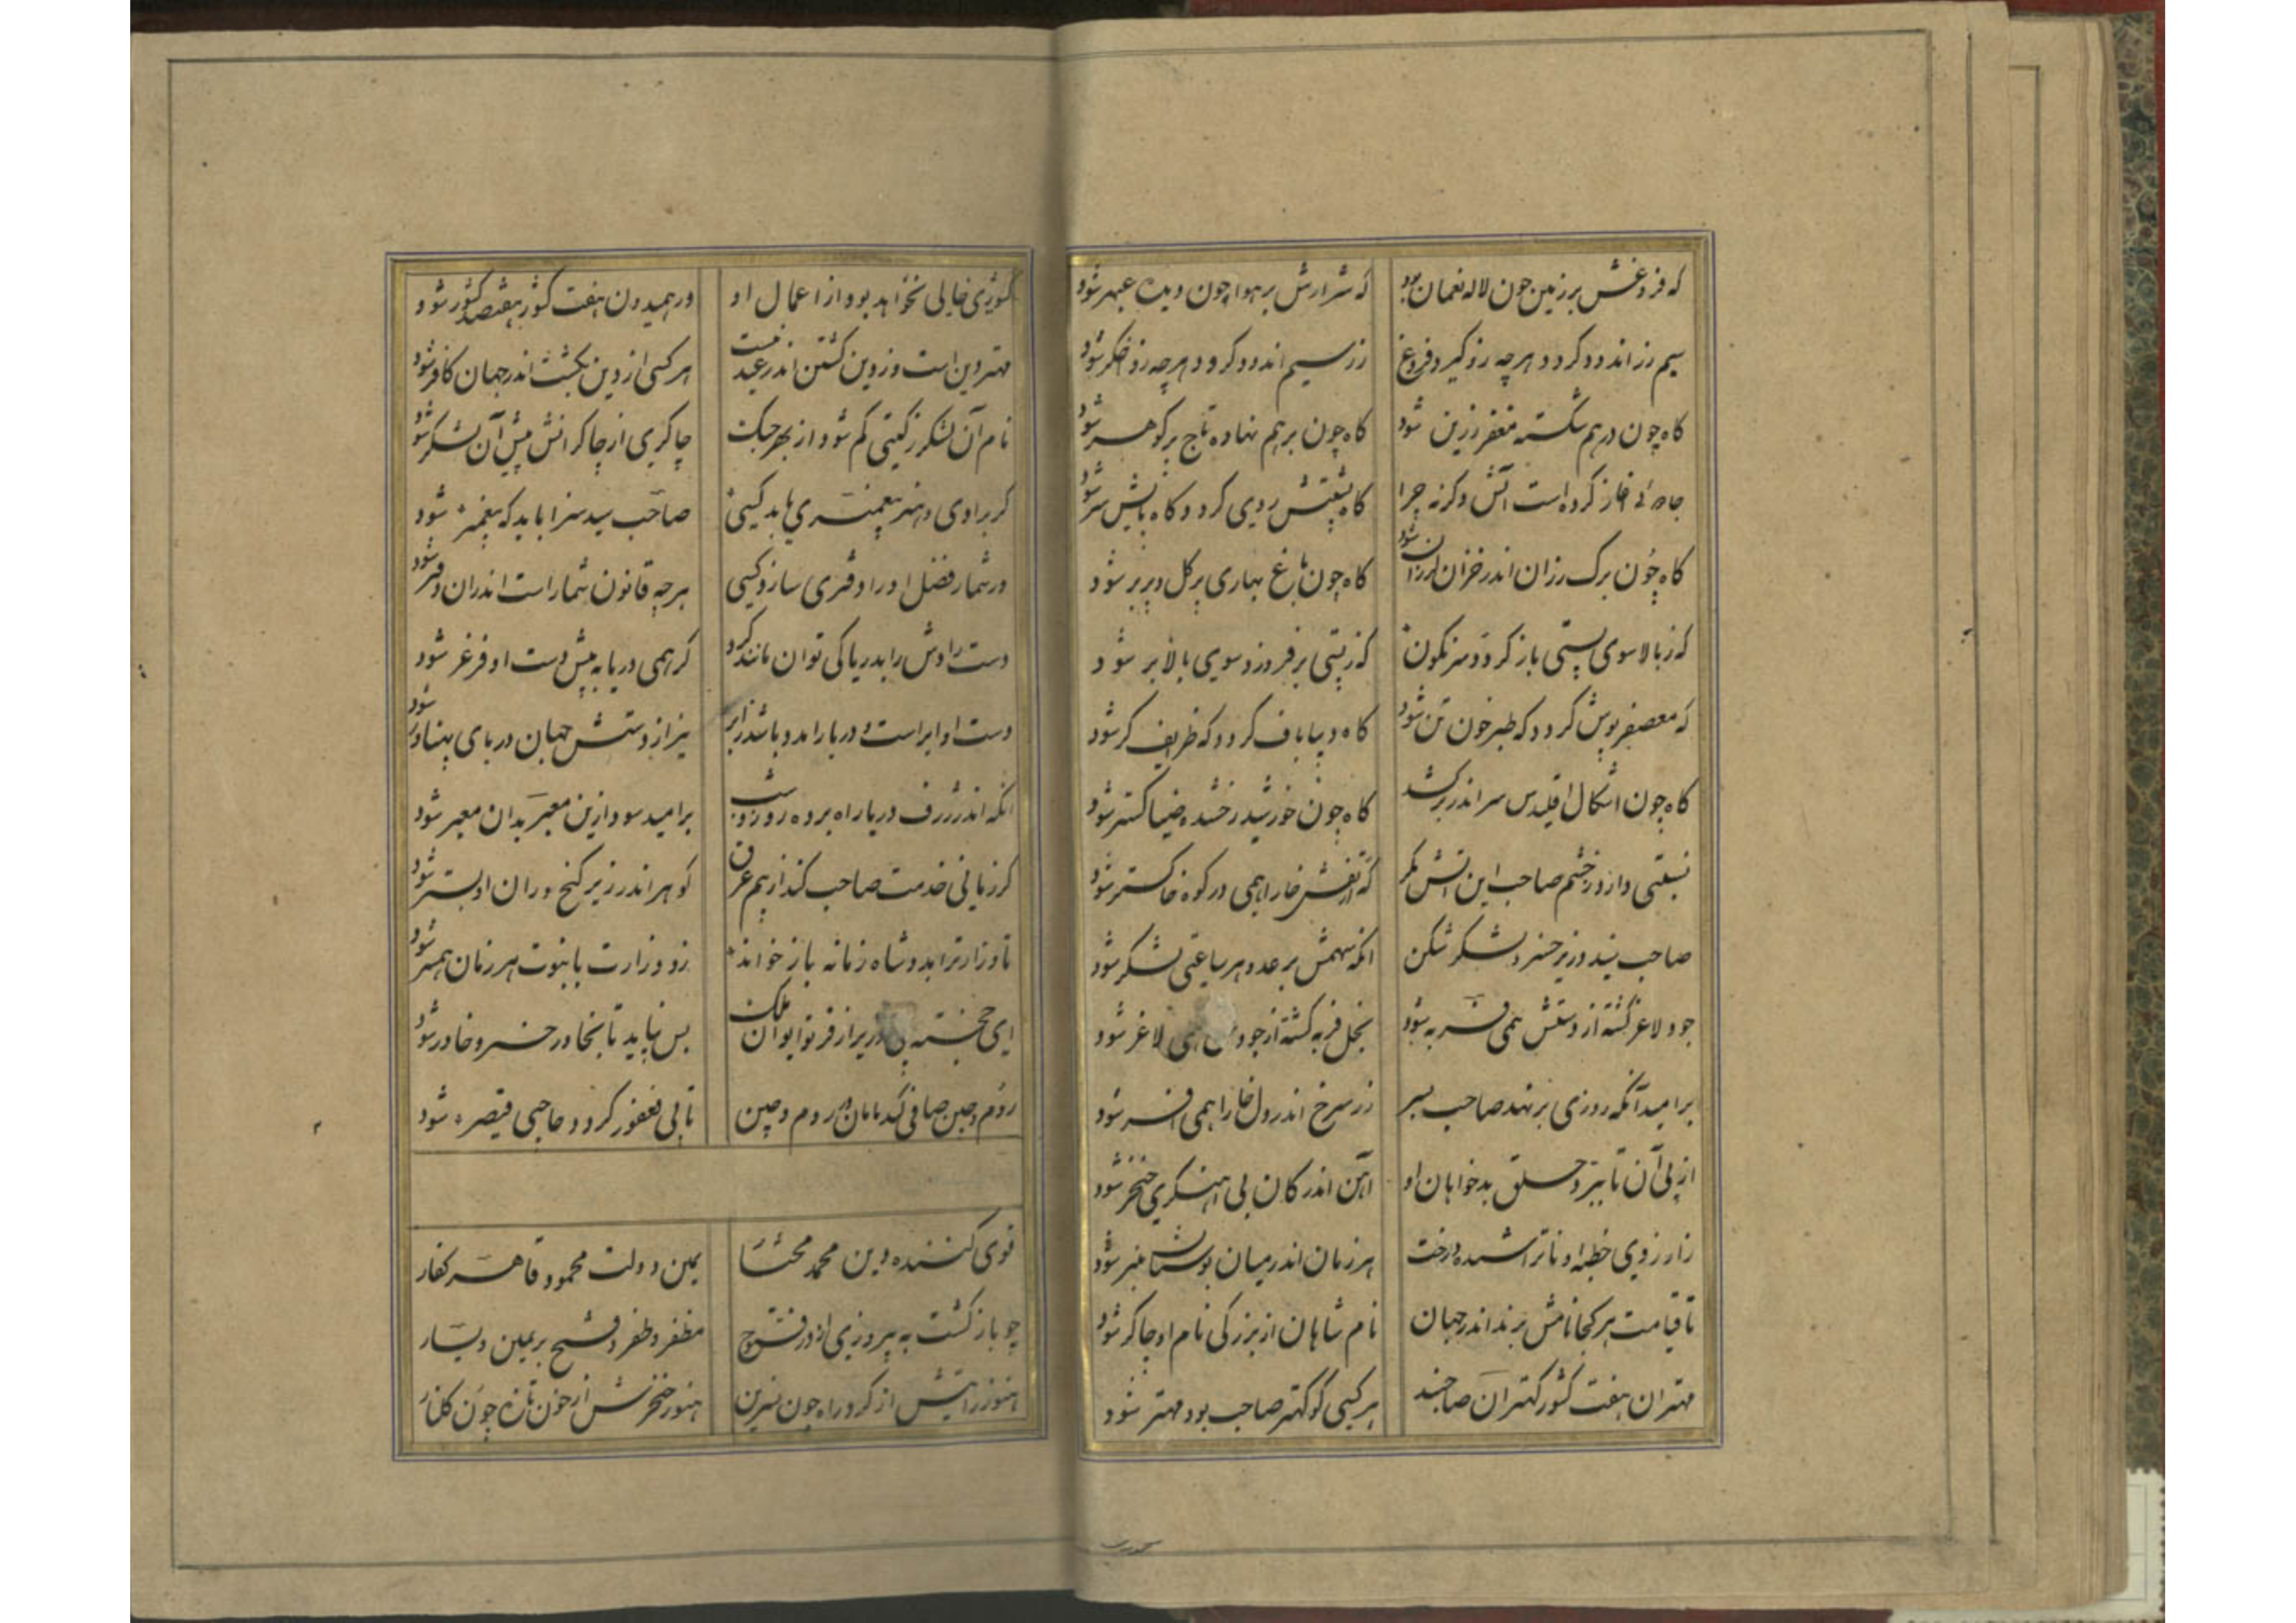 که فروغش بر زمین چون لاله نعمان بود که شرارش بر هوا چون دیده عبهر شود
سیم زر اندود گردد هرچه زو گیرد فروغ زر سیم اندود گردد هرچه زو اخگر شود
گاه چون درهم شکسته مغفر زرین شود گاه چون برهم نهاده تاج پر گوهر شود
آتش وگرنه چرا گاه پشتش روی گردد گاه پایش سر شود
گاه چون برگ رزان اندر خزان لرزان شود گاه چون باغ بهاری پر گل و پر بر شود
که ز بالا سوی پستی باز گردد سرنگون که ز پستی برفروزد سوی بالا بر شود
که معصفر پوش گردد که طبرخون تن شود گاه دیبا باف گردد که طریف گر شود
گاه چون اشکال اقلیدس سر اندر سر کشد گاه چون خورشید رخشنده ضیا گستر شود
نسبتی دارد ز خشم صاحب این آتش مگر که تفش خارا همی در کوه خاکستر شود
صاحب سید وزیر خسرو لشکر شکن آنکه سهمش بر عدو هر ساعتی لشکر شود
جود لاغر گشته از دستش همی فربه شود بخل فربه گشته از جودش همی لاغر شود
بر امید آنکه روزی بر نهد صاحب بسر زر سرخ اندر دل خارا همی افسر شود
از پی آن تا ببرد حلق بدخواهان او آهن اندر کان بی آهنگری خنجر شود
ز آرزوی خطبه او ناتراشیده درخت هر زمان اندر میان بوستان منبر شود
تا قیامت هر کجا نامش برند اندر جهان نام شاهان از بزرگی نام او چاکر شود
مهتران هفت کشور کهتران صاحبند هر کسی کو کهتر صاحب بود مهتر شود
کشوری خالی نخواهد بود از اعمال او ور همیدون هفت کشور هفتصد کشور شود
مهتر دین است وز دین گشتن اندر عید نیست هر کسی از دین بگشت اندر جهان کافر شود
نام آن لشکر ز گیتی گم شود از بهر جنگ چاکری از چاکرانش پیش آن لشکر شود
گر برادی و هنر پیغمبری یابد کسی صاحب سید سزا باید که پیغمبر شود
در شمار فضل او را دفتری سازد کسی هرچه قانون شمار است اندران دفتر شود
دست رادش را بدریا کی توان مانند کرد گر همی دریا به پیش دست او فرغر شود
دست او ابر است و دریا را مدد باشد ز ابر نیز از دستش جهان دریای پهناور شود
آنکه اندر ژرف دریا راه برد روز و شب بر امید سود ازین معبر بدان معبر شود
گر زمانی خدمت صاحب کند از بیم غرق گوهر اندر زیر گنج وران او بستر شود
تا وزارت را بدو شاه زمانه باز خواند زو وزارت با نبوت هر زمان همسر شود
ای خجسته پی وزیر از فر تو ایوان ملک بس نپاید تا بخاور خسرو خاور شود
روم و چین صافی کند در روم و چین فغفور گردد حاجبی قیصر شود
قوی کننده دین محمد مختار یمین دولت محمود قاهر کفار
چو باز گشت به پیروزی از در قنوج مظفر و ظفر و فتح بر یمین و یسار
هنوز رایتش از گرد راه چون نسرین هنوز خنجرش از خون تازه چون گلنار